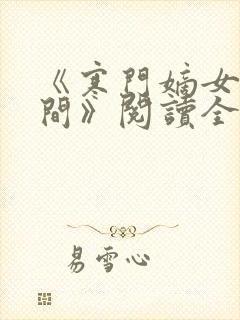 《寒門嫡女
間》閱讀全
易雪心